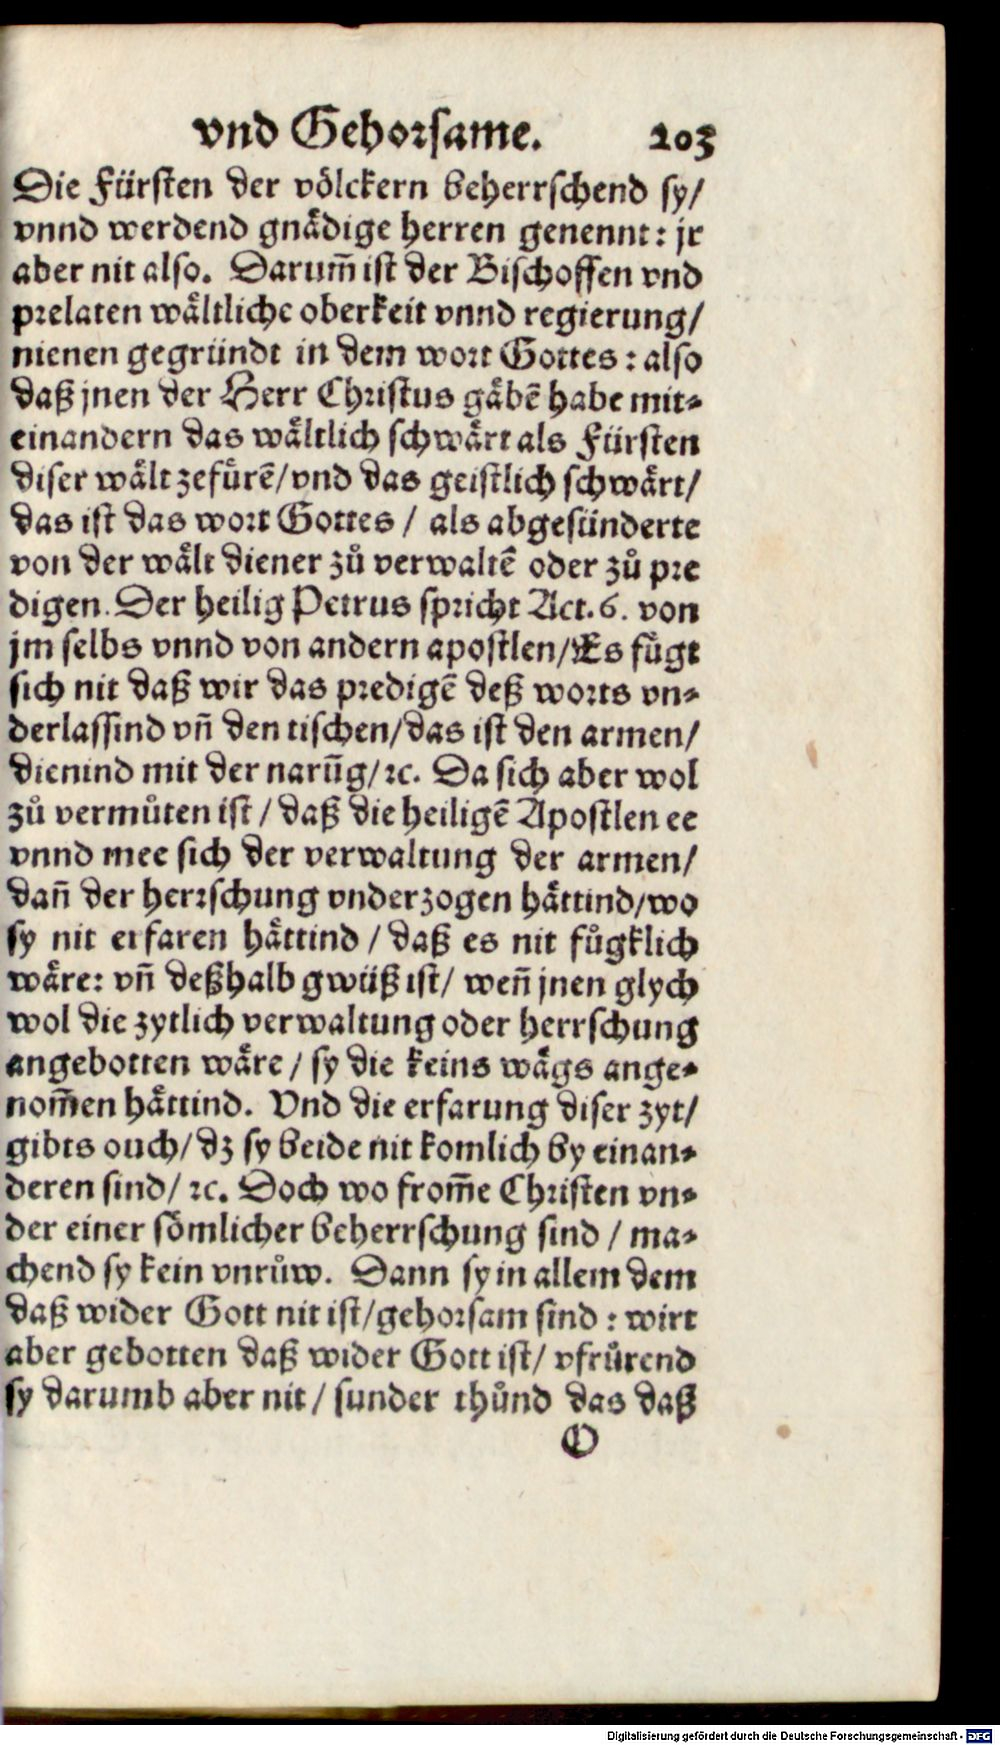 vnd Gehorsame. 203
Die Fürsten der völckern beherrschend sy/
vnnd werdend gnaͤdige herren genennt: jr
aber nit also. Darum̃ ist der Bischoffen vnd
prelaten waͤltliche oberkeit vnnd regierung/
nienen gegründt in dem wort Gottes: also
daß jnen der Herr Christus gaͤbẽ habe mit-
einandern das waͤltlich schwaͤrt als Fürsten
diser waͤlt zefuͤrẽ/ vnd das geistlich schwaͤrt/
das ist das wort Gottes / als abgesünderte
von der waͤlt diener zuͦ verwaltẽ oder zuͦ pre
digen. Der heilig Petrus spricht Act. 6. von
jm selbs vnnd von andern apostlen/ Es fuͤgt
sich nit daß wir das predigẽ deß worts vn-
derlassind vñ den tischen/ das ist den armen/
dienind mit der narũg/ ꝛc. Da sich aber wol
zuͦ vermuͦten ist / daß die heiligẽ Apostlen ee
vnnd mee sich der verwaltung der armen/
dañ der herrschung vnderzogen haͤttind/ wo
sy nit erfaren haͤttind / daß es nit fuͦgklich
waͤre: vñ deßhalb gwüß ist/ weñ jnen glych
wol die zytlich verwaltung oder herrschung
angebotten waͤre / sy die keins waͤgs ange-
nom̃en haͤttind. Vnd die erfarung diser zyt/
gibts ouch/ dz sy beide nit komlich by einan-
deren sind/ ꝛc. Doch wo from̃e Christen vn-
der einer soͤmlicher beherrschung sind / ma-
chend sy kein vnruͦw. Dann sy in allem dem
daß wider Gott nit ist/ gehorsam sind: wirt
aber gebotten daß wider Gott ist/ vfruͦrend
sy darumb aber nit / sunder thuͦnd das daß
O
Digitalisierung gefördert durch die Deutsche Forschungsgemeinschaft - DFG